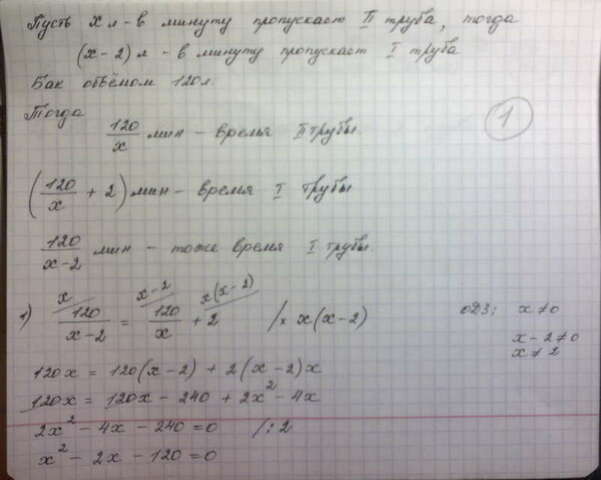 Пусть x л - в минуту пропускает II труба, тогда
(x - 2) л - в минуту пропускает I труба
Бак объёмом 120 л.
Тогда
1
120/x мин - время II трубы.
(120/x + 2) мин - время I трубы
120/(x-2) мин - тоже время I трубы.
1) 120/(x-2) = 120/x + 2 /× x(x-2)
x x-2 x(x-2)
ОДЗ: x ≠ 0
x - 2 ≠ 0
x ≠ 2
120x = 120(x-2) + 2(x-2)x
120x = 120x - 240 + 2x² - 4x
2x² - 4x - 240 = 0 /: 2
x² - 2x - 120 = 0